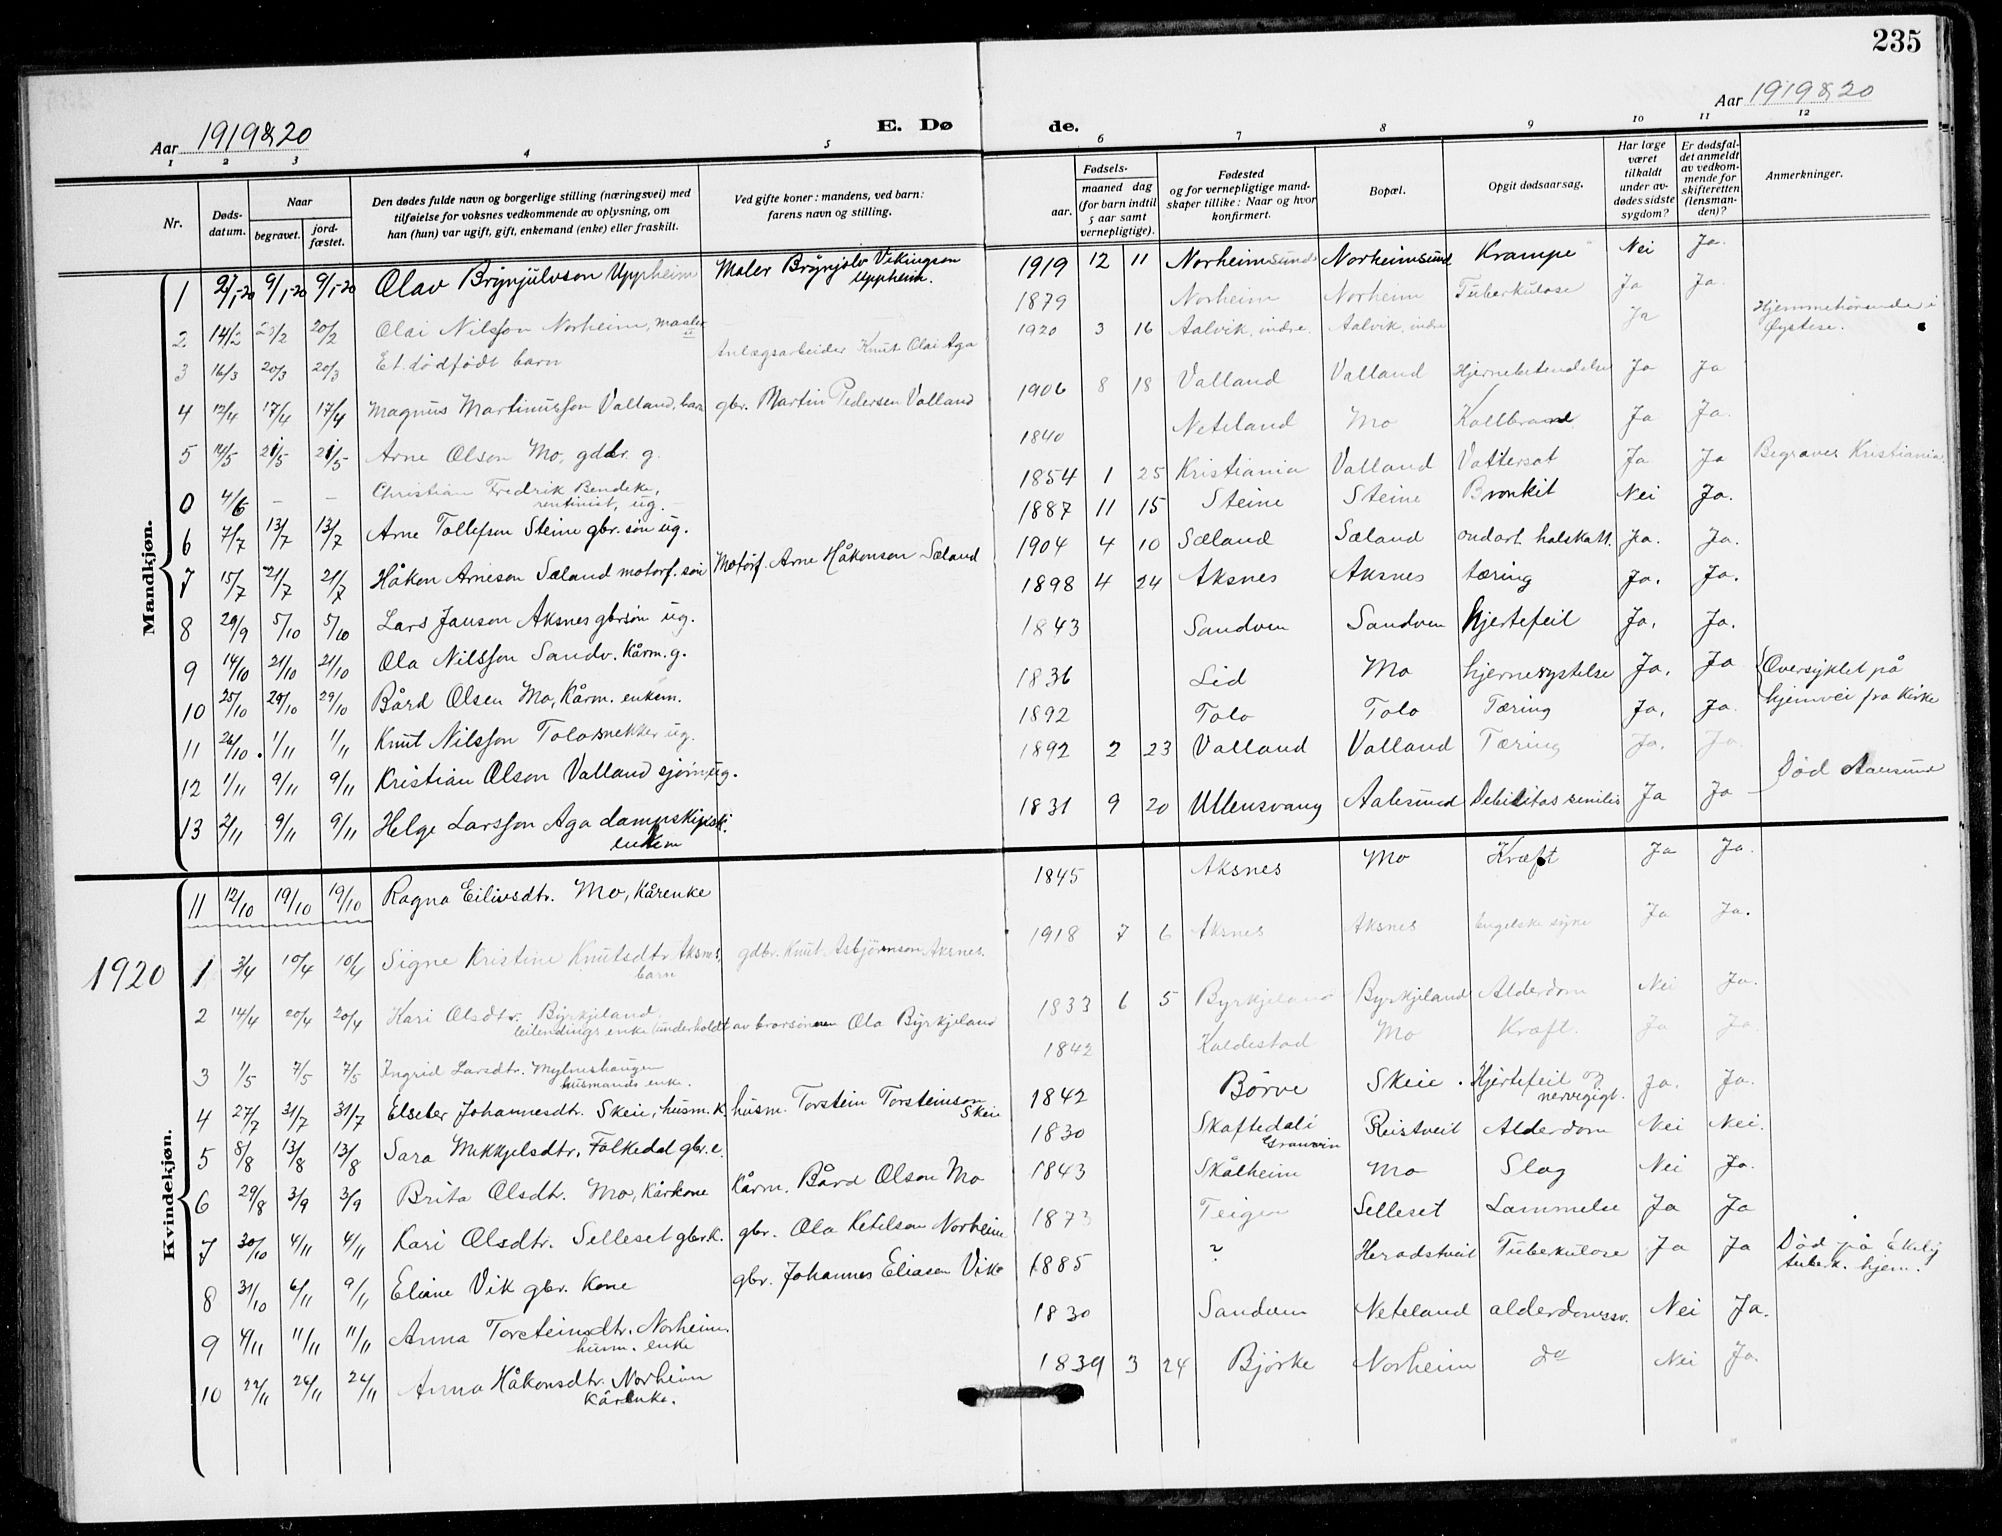 235
Aar 1919&20
E. Dø
de.
Aar 1919&20
1 2 3 4 5 6 7 8 9 10 11 12
Nr. Døds-datum. Naar begravet. jord-fæstet. Den dødes fulde navn og borgerlige stilling (næringsvei) med tilføielse for voksnes vedkommende av oplysning, om han (hun) var ugift, gift, enkemand (enke) eller fraskilt. Ved gifte koner: mandens, ved barn: farens navn og stilling. Fødsels- aar. maaned dag (for barn indtil 5 aar samt vernepligtige). Fødested og for vernepligtige mand-skaper tillike: Naar og hvor konfirmert. Bopæl. Opgit dødsaarsag. Har læge været tilkaldt under av-dødes sidste sygdom? Er dødsfal-det anmeldt av vedkom-mende for skifteretten (lensman-den)? Anmerkninger.
Mandkjøn.
1 2/1-20 9/1-20 9/1-20 Olav Brynjulvson Uppheim Maler Brynjolv Vikingson Uppheim. 1919 12 11 Norheimsund Norheimsund Krampe Nei Ja.
2 14/2 20/2 Olai Nilsson Norheim, maaler 1879 Norheim Norheim Tuberkulose Ja Ja.
3 16/3 20/3 20/3 Et dødfødt barn Anlægsarbeider Knut Olai Aga 1920 3 16 Aalvik, indre. Aalvik, indre Ja Hjemmehørende i Øystese.
4 12/4 17/4 17/4 Magnus Martinusson Valland, barn gbr. Martin Pedersen Valland 1906 8 18 Valland Valland Hjernebetendelse Ja Ja
5 14/5 21/5 21/5 Arne Olson Mo, gdbr. g. 1840 Neteland Mo Koldbrand Ja Ja.
0 4/6 - - Christian Fredrik Bendeke, rentinist, ug. 1854 1 25 Kristiania Valland Vattersot Ja Ja Begraves Kristiania.
6 7/7 13/7 13/7 Arne Tollefson Steine gbr. søn ug. 1887 11 15 Steine Steine Bronkit Nei Ja.
7 15/7 21/7 21/7 Håkon Arneson Sæland motorf. søn Motorf. Arne Håkonson Sæland 1904 4 10 Sæland Sæland ondart. halskatt. Ja. Ja.
8 29/9 5/10 5/10 Lars Janson Aksnes gbrsøn ug. 1898 4 24 Aksnes Aksnes tæring Ja. Ja.
9 14/10 21/10 21/10 Ola Nilsson Sandv. Kårm. g. 1843 Sandven Sandven Hjertefeil Ja. Ja.
10 25/10 29/10 29/10 Bård Olsen Mo, Kårm. enkem. 1836 Lid Mo hjernerystelse Ja. Ja Oversyklet på hjemvei fra kirke
11 26/10 1/11 1/11 Knut Nilsson Tolo snekker ug. 1892 Tolo Tolo Tæring Ja. Ja.
12 1/11 9/11 9/11 Kristian Olson Valland sjøm. ug. 1892 2 23 Valland Valland Tæring Ja. Ja
13 2/11 9/11 9/11 Helge Larsson Aga dampskipsk. enkem 1831 9 20 Ullensvang Aalesund Debilitas senilis Ja Ja Død Aalesund
Kvindekjøn.
11 12/10 19/10 19/10 Ragna Eilivsdtr. Mo, Kårenke 1845 Aksnes Mo Kræft Ja Ja.
1920
1 3/4 10/4 10/4 Signe Kristine Knutsdtr Aksnes, barn gdbr. Knut Asbjørnson Aksnes. 1918 7 6 Aksnes Aksnes Engelske syke Ja Ja.
2 14/4 20/4 20/4 Kari Olsdtr. Byrkjeland, leilendings enke (underholdt av brorsønnen Ola Byrkjeland 1833 6 5 Byrkjeland Byrkjeland Alderdom Nei Ja.
3 1/5 7/5 7/5 Ingrid Larsdtr. Mylnshaugen husmands enke. 1842 Koldestad Mo Kræft. Ja Ja.
4 27/7 31/7 31/7 Elseber Johannesdtr. Skeie, husm. k. husm. Torstein Torsteinson Skeie 1842 Børve Skeie Hjertefeil og nervegigt. Ja. Ja.
5 8/8 13/8 13/8 Sara Mikkjelsdtr. Folkedal gbr. e. 1830 Skaftedali Granvin Reistveit Alderdom Nei Nei.
6 29/8 3/9 3/9 Brita Olsdtr. Mo, Kårkone Kårm. Bård Olson Mo 1843 Skålheim Mo Slag Nei Ja.
7 30/10 4/11 4/11 Kari Olsdtr. Selleset gbr. k. gbr. Ola Ketilson Norheim 1873 Teigen Selleset Lammelse Ja Ja
8 31/10 6/11 9/11 Eliane Vik gbr. kone gbr. Johannes Eliasen Vik 1885 ? Heradstveit Tuberkulose Ja Ja Død på Ekelij tuberk. hjem.
9 4/11 11/11 11/11 Anna Torsteinsdtr. Norheim. husm. enke 1830 Sandven Neteland alderdomssv. Nei Ja.
10 22/11 26/11 26/11 Anna Håkonsdtr. Norheim Kårenke. 1839 3 24 Bjørke Norheim do Nei Ja.